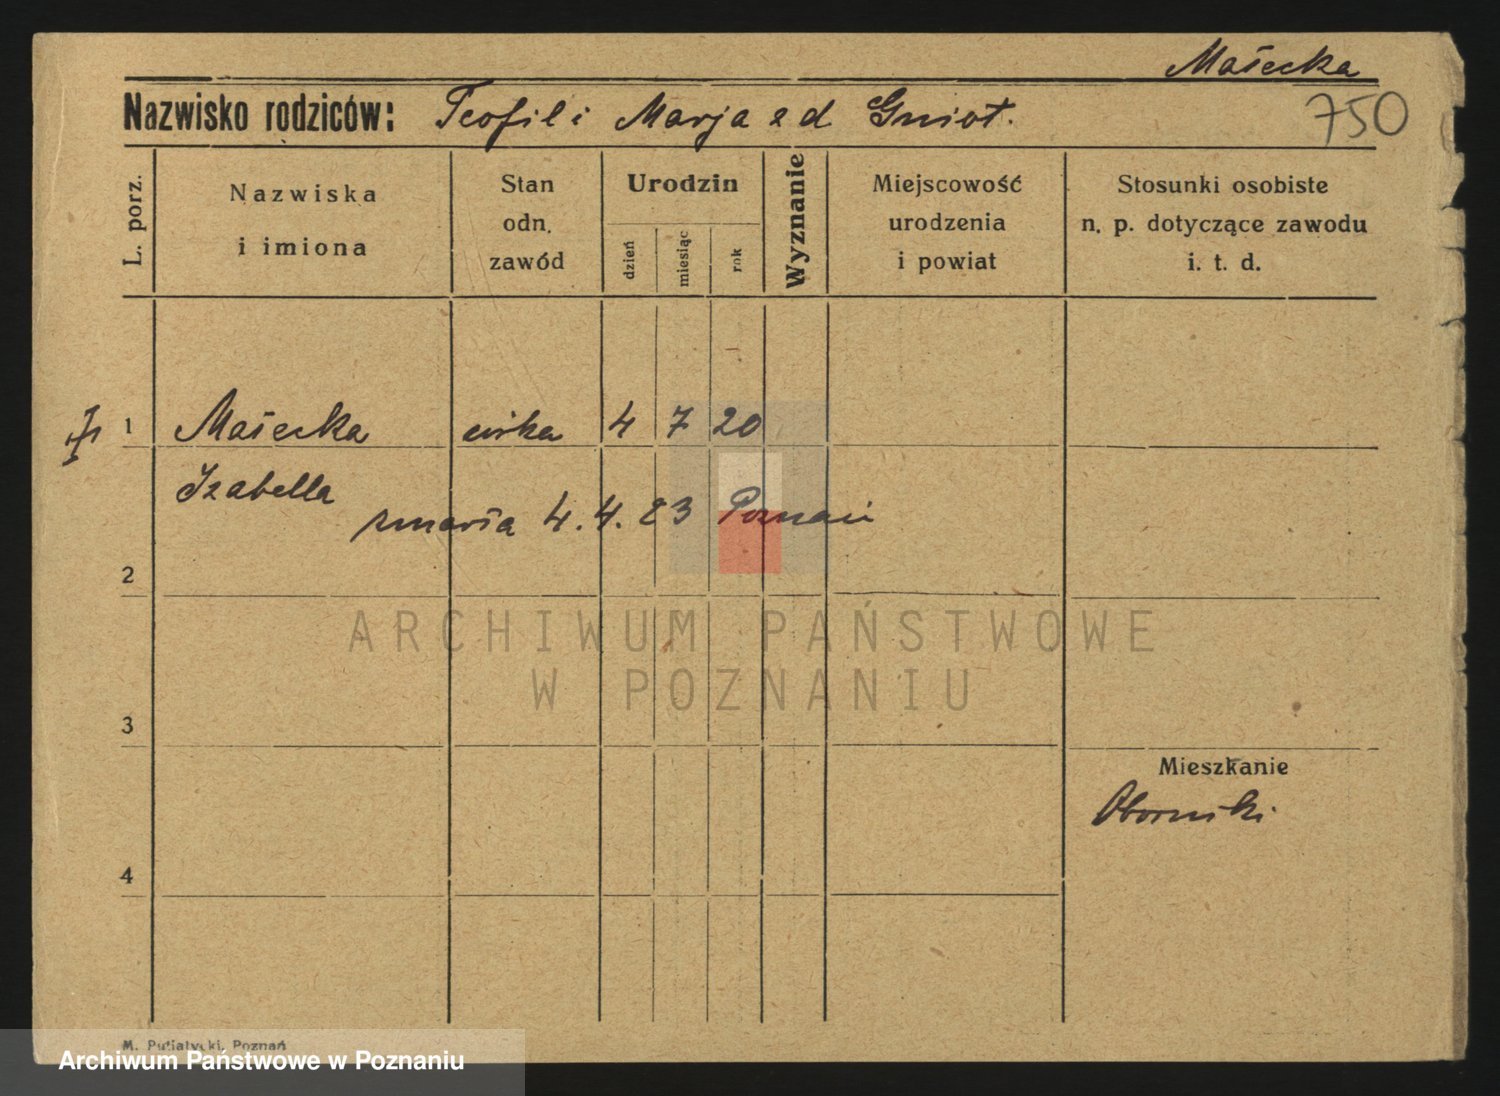 Małecka
Nazwisko rodziców: Teofil i Marja z d Gniot.
750
L. porz.
Nazwiska
i imiona
Stan
odn.
zawód
Urodzin
dzień
miesiąc
rok
Wyznanie
Miejscowość
urodzenia
i powiat
Stosunki osobiste
n. p. dotyczące zawodu
i. t. d.
1 Małecka córka 4 7 20
Izabella
zmarła 4. 4. 23 Poznań
2
ARCHIWUM PAŃSTWOWE
W POZNANIU
3
Mieszkanie
Oborniki
4
M. Putiatycki, Poznań
Archiwum Państwowe w Poznaniu